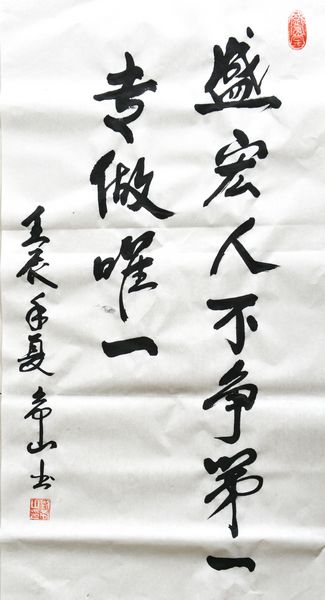 盛宏人不争第一
专做唯一
壬辰年夏 希山书